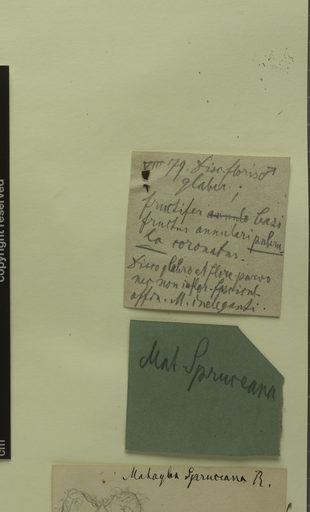 copyright reserved
cm
VIII 79. Disc floris ♂
glaber;
fructifer annulo basi
fructus annulari pube ru
la coronatus.
Disco glabro et flore parvo
nec non inflor. fascicul.
affin. M. ineleganti.
Mat Spruceana
Matayba Spruceana R.